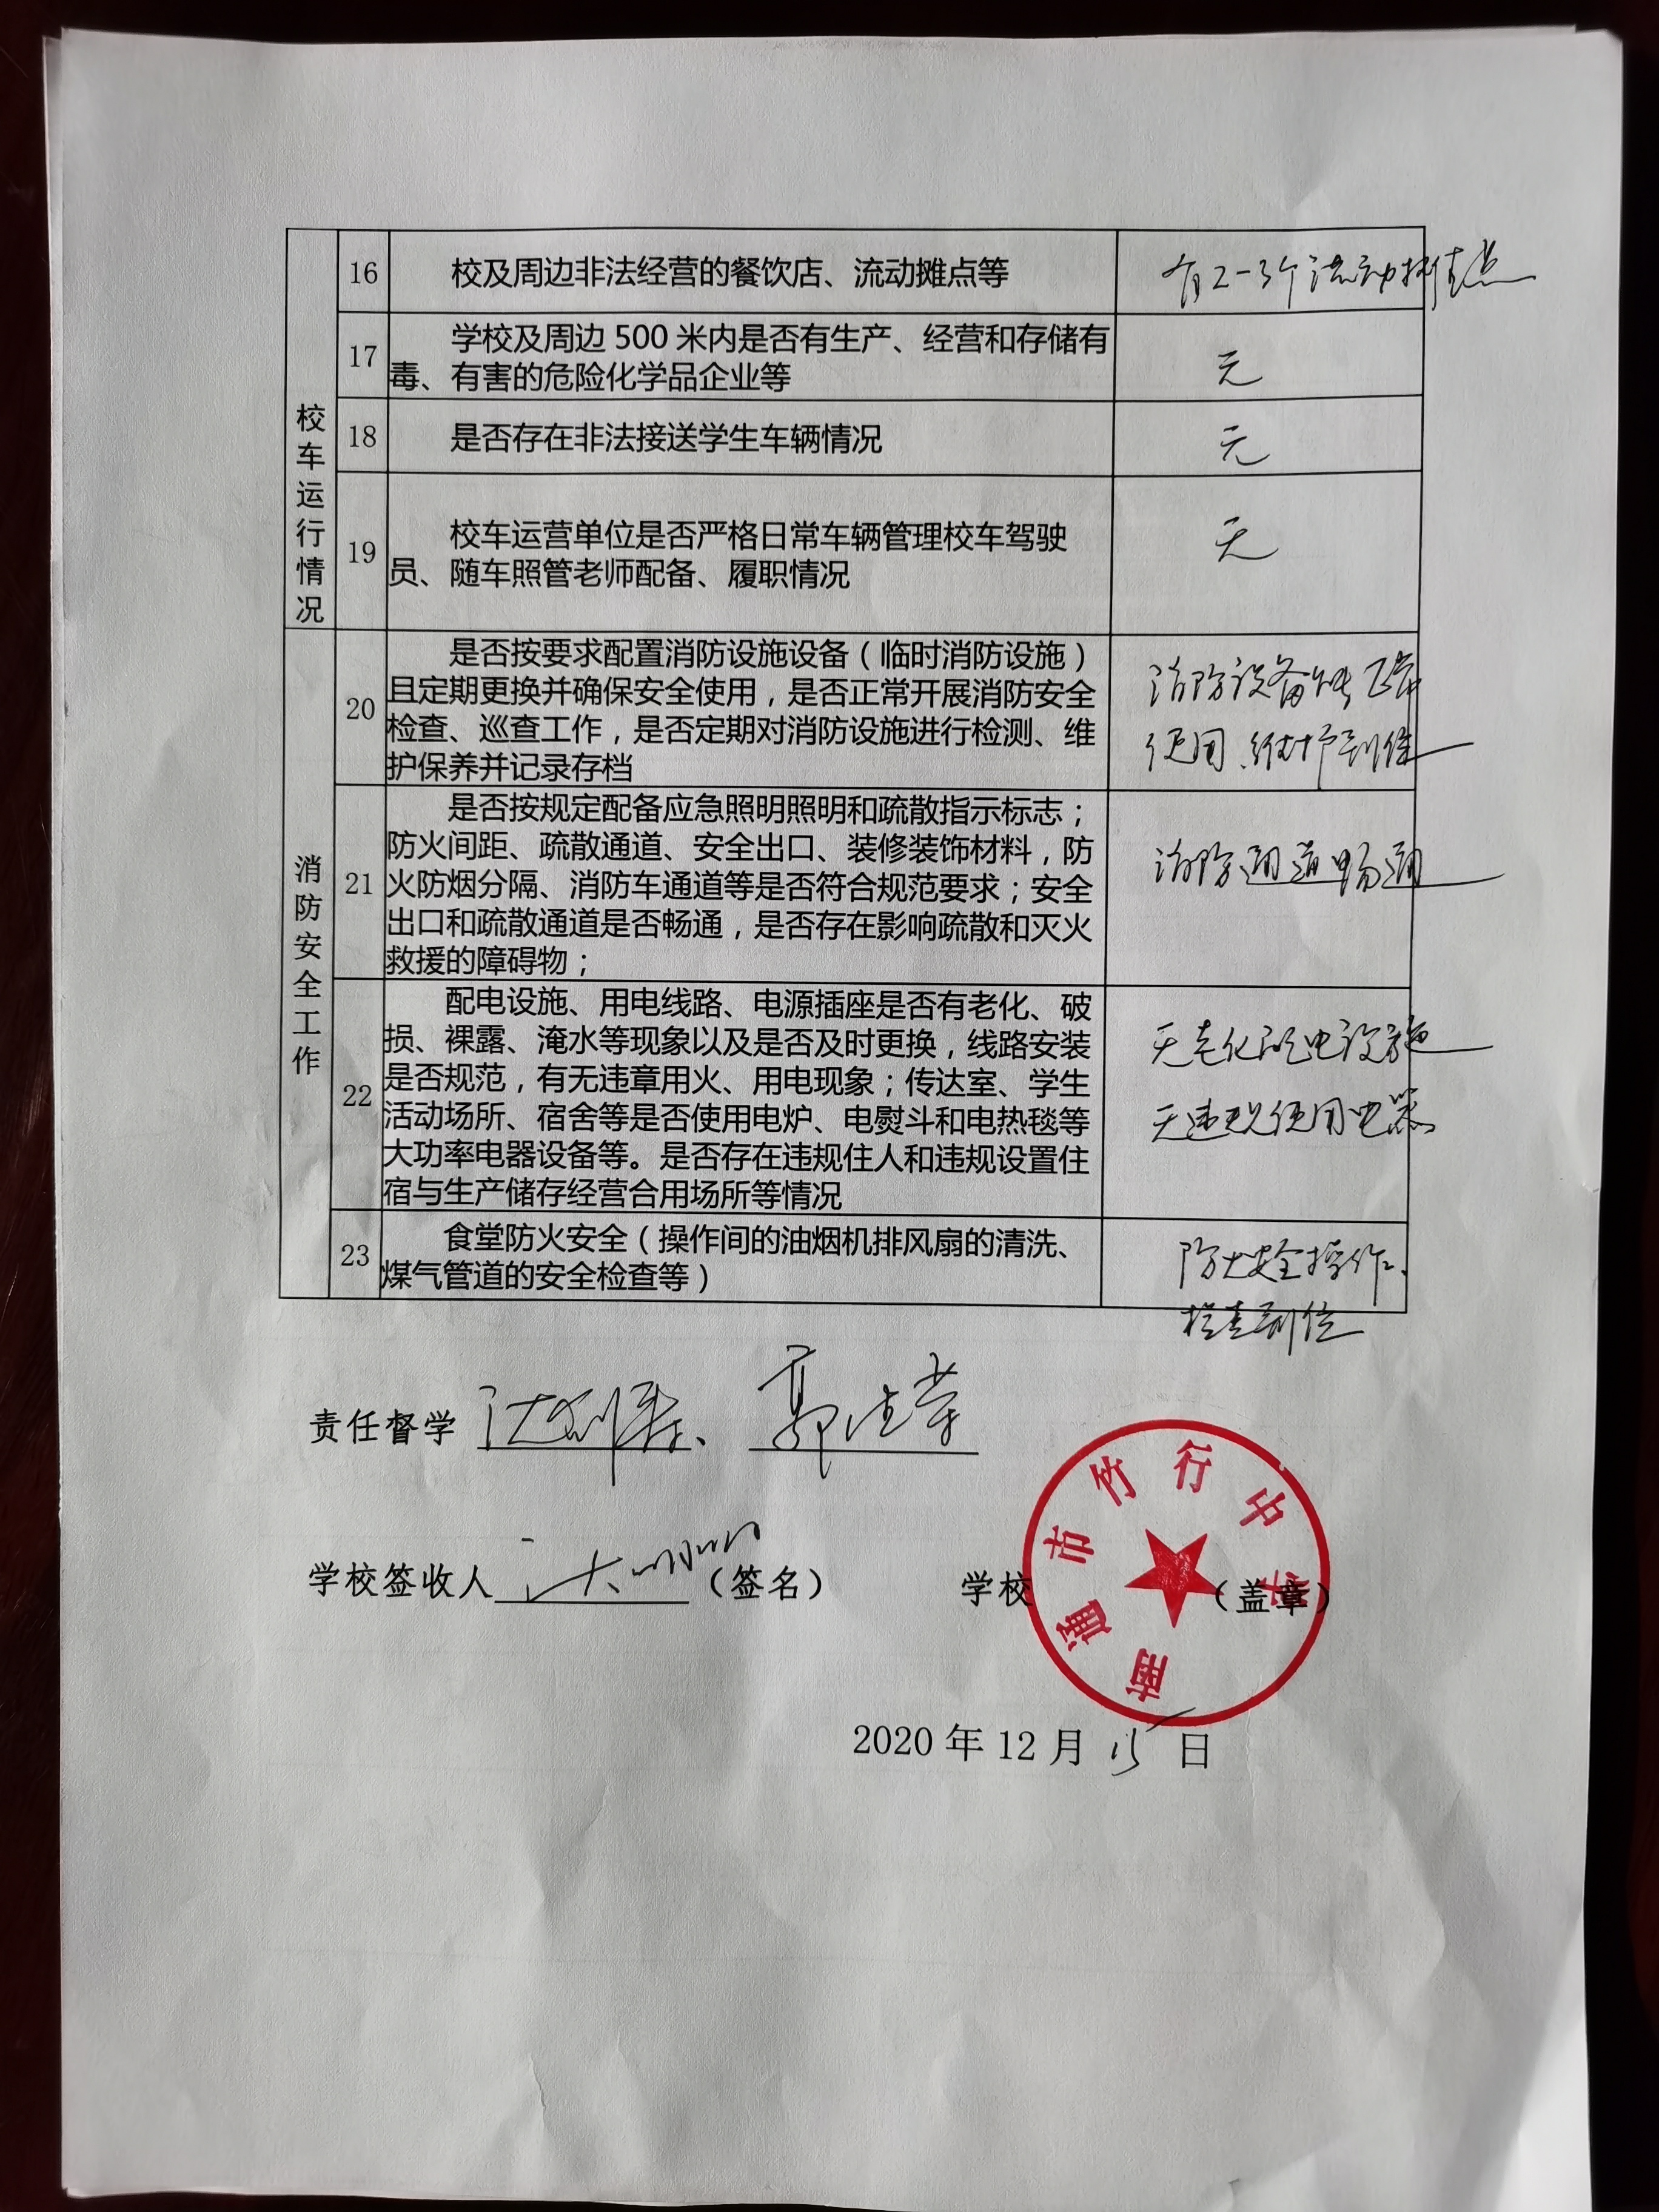 校车运行情况
16
校及周边非法经营的餐饮店、流动摊点等
有2-3个流动摊点
17
学校及周边 500 米内是否有生产、经营和存储有
毒、有害的危险化学品企业等
无
18
是否存在非法接送学生车辆情况
无
19
校车运营单位是否严格日常车辆管理校车驾驶
员、随车照管老师配备、履职情况
无
消防安全工作
20
是否按要求配置消防设施设备（临时消防设施）
且定期更换并确保安全使用，是否正常开展消防安全
检查、巡查工作，是否定期对消防设施进行检测、维
护保养并记录存档
消防设备能正常
使用、维护到位
21
是否按规定配备应急照明照明和疏散指示标志；
防火间距、疏散通道、安全出口、装修装饰材料，防
火防烟分隔、消防车通道等是否符合规范要求；安全
出口和疏散通道是否畅通，是否存在影响疏散和灭火
救援的障碍物；
消防通道畅通
22
配电设施、用电线路、电源插座是否有老化、破
损、裸露、淹水等现象以及是否及时更换，线路安装
是否规范，有无违章用火、用电现象；传达室、学生
活动场所、宿舍等是否使用电炉、电熨斗和电热毯等
大功率电器设备等。是否存在违规住人和违规设置住
宿与生产储存经营合用场所等情况
无老化配电设施
无违规使用电器
23
食堂防火安全（操作间的油烟机排风扇的清洗、
煤气管道的安全检查等）
防火安全操作、
检查到位
责任督学
学校签收人（签名） 学校（盖章）
南通市竹行中学
2020 年 12 月 15 日